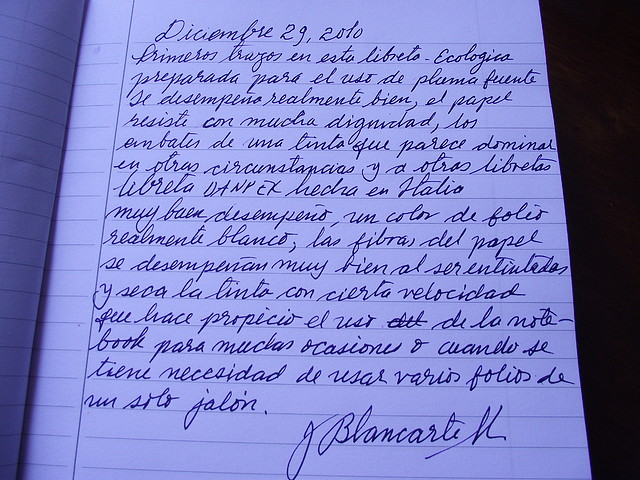 Diciembre 29, 2010
Primeros trazos en esta libreta - Ecologica
preparada para el uso de pluma fuente
se desempeña realmente bien, el papel
resiste con mucha dignidad, los
embates de una tinta que parece dominar
en otras circunstancias y a otras libretas
libreta DANPEX hecha en Italia
muy buen desempeño, un color de folio
realmente blanco, las fibras del papel
se desempeñan muy bien al ser entintadas
y seca la tinta con cierta velocidad
que hace propicio el uso del de la note-
book para muchas ocasiones o cuando se
tiene necesidad de usar varios folios de
un solo jalón.
J Blancarte M